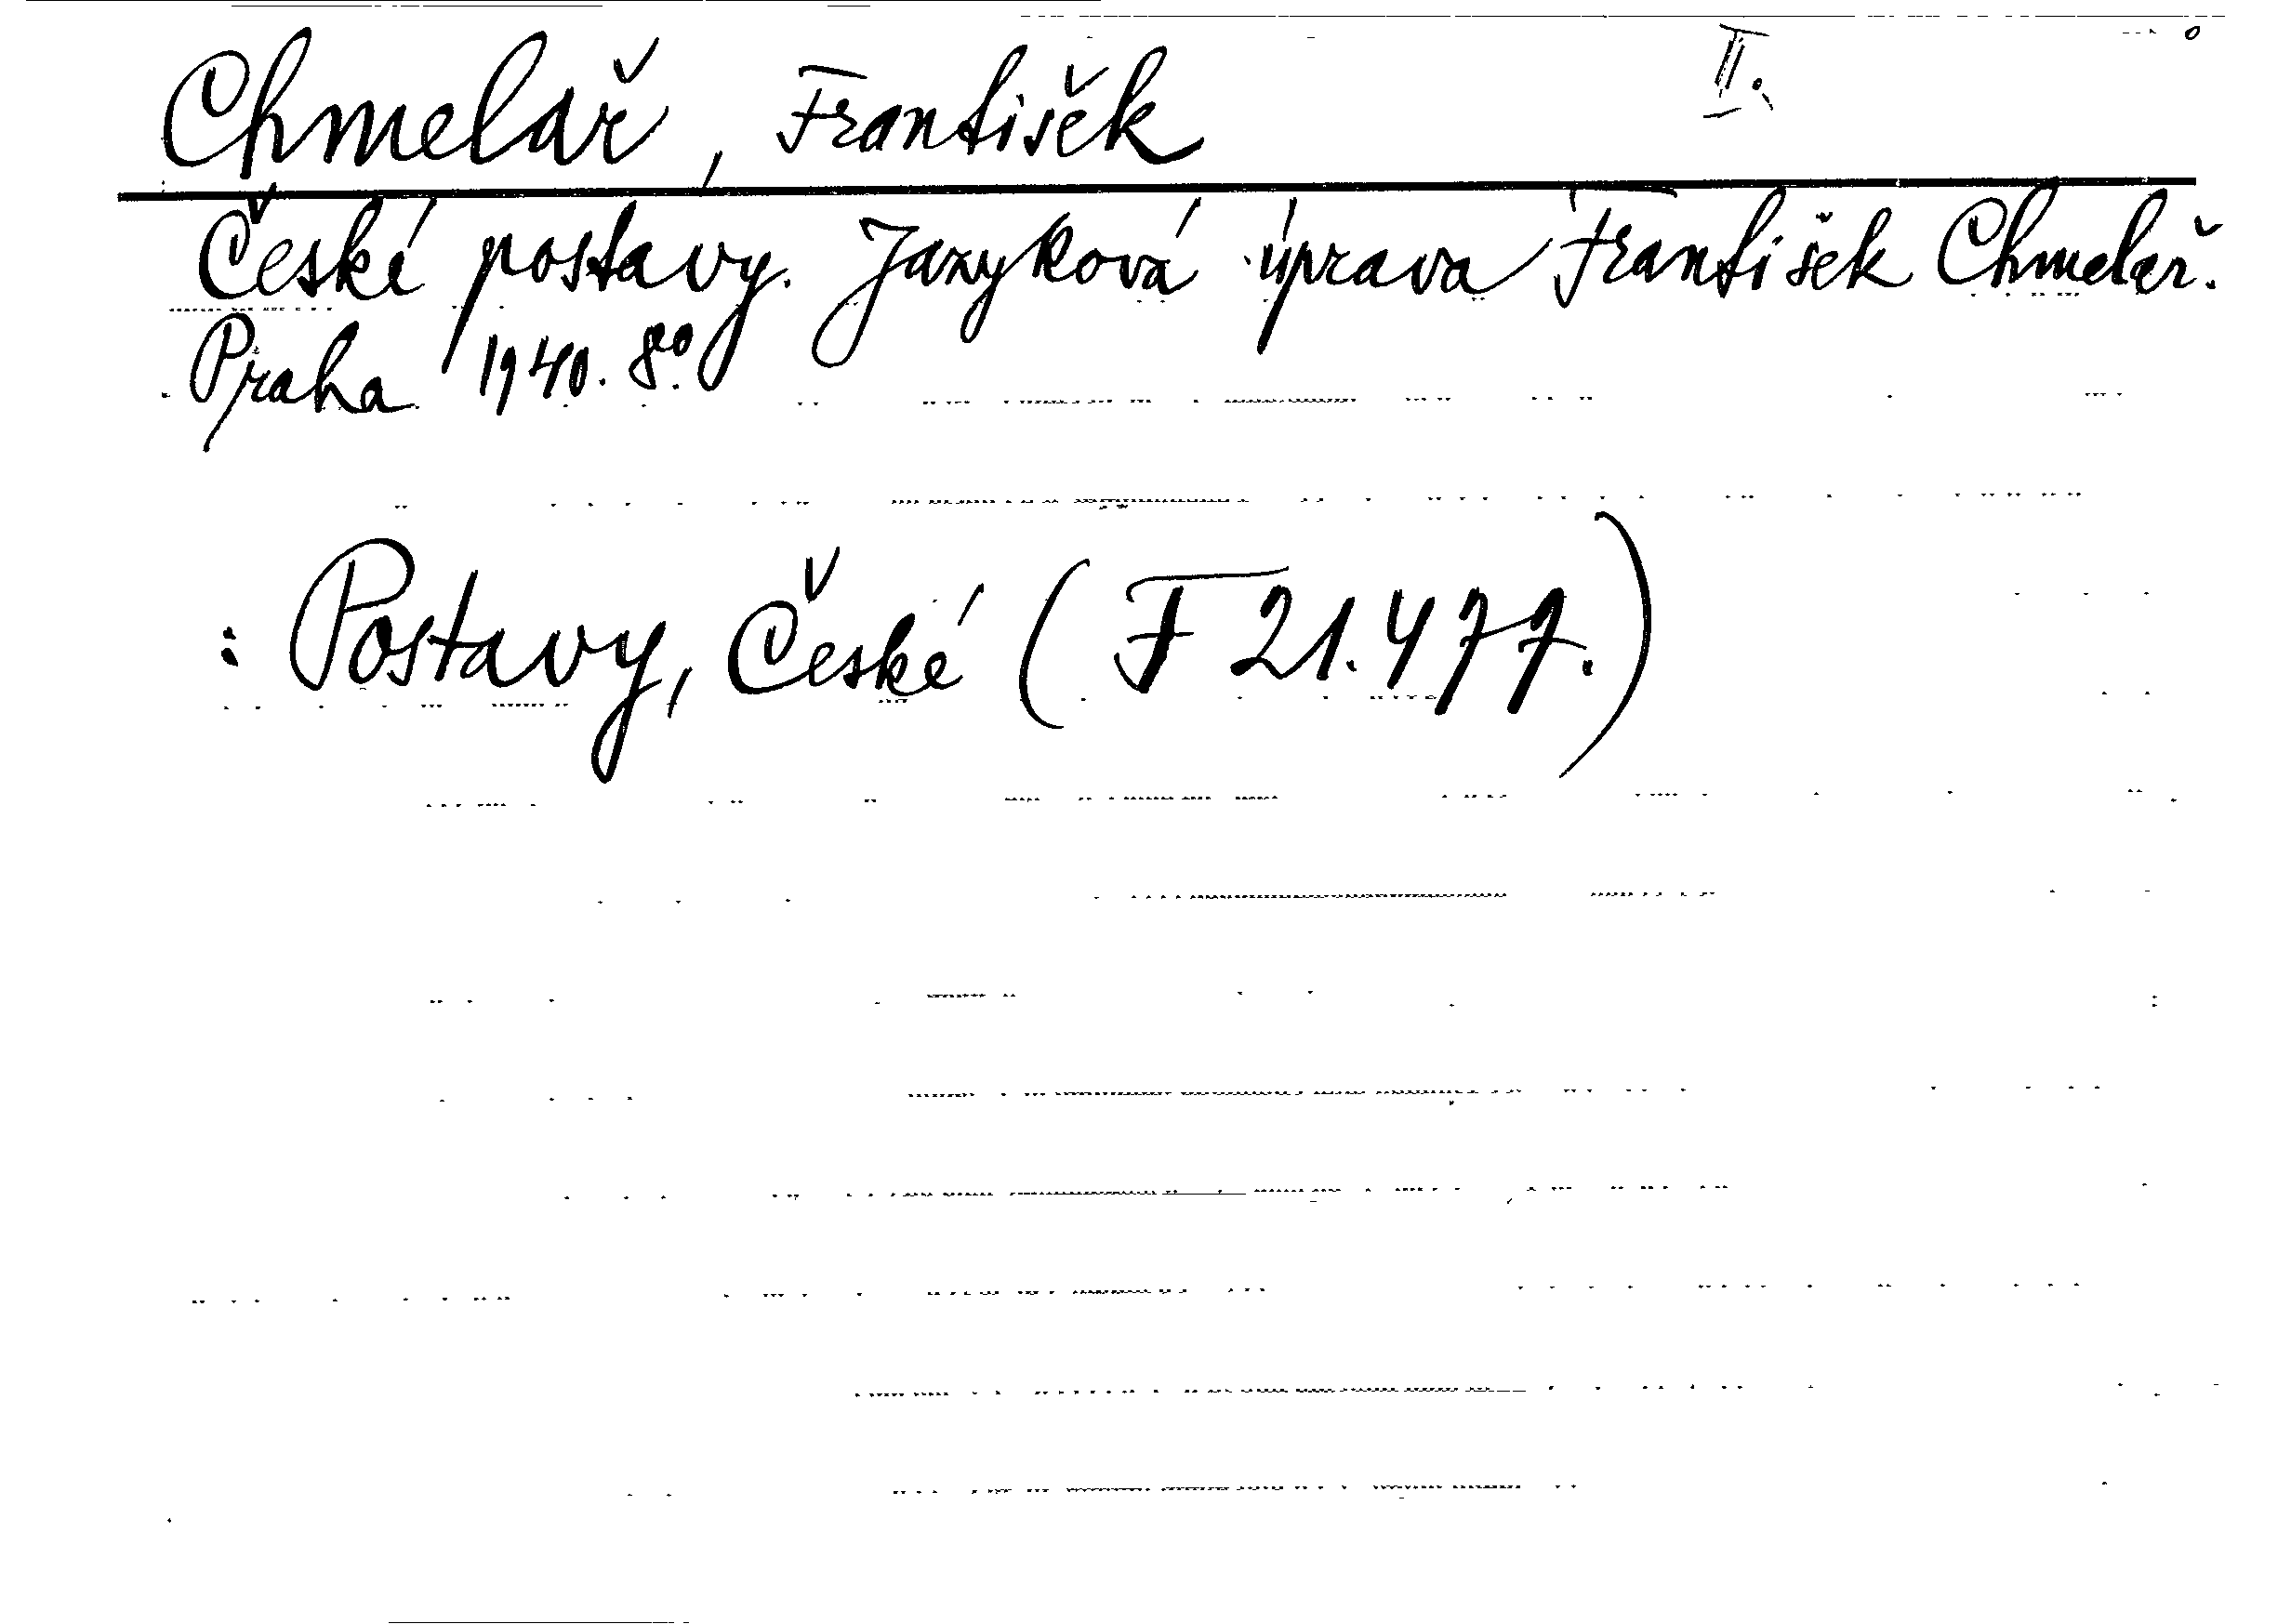 Chmelař, František II.
České postavy. Jazyková úprava František Chmelař.
Praha 1940. 8º.
: Postavy, České (F 21.477.)